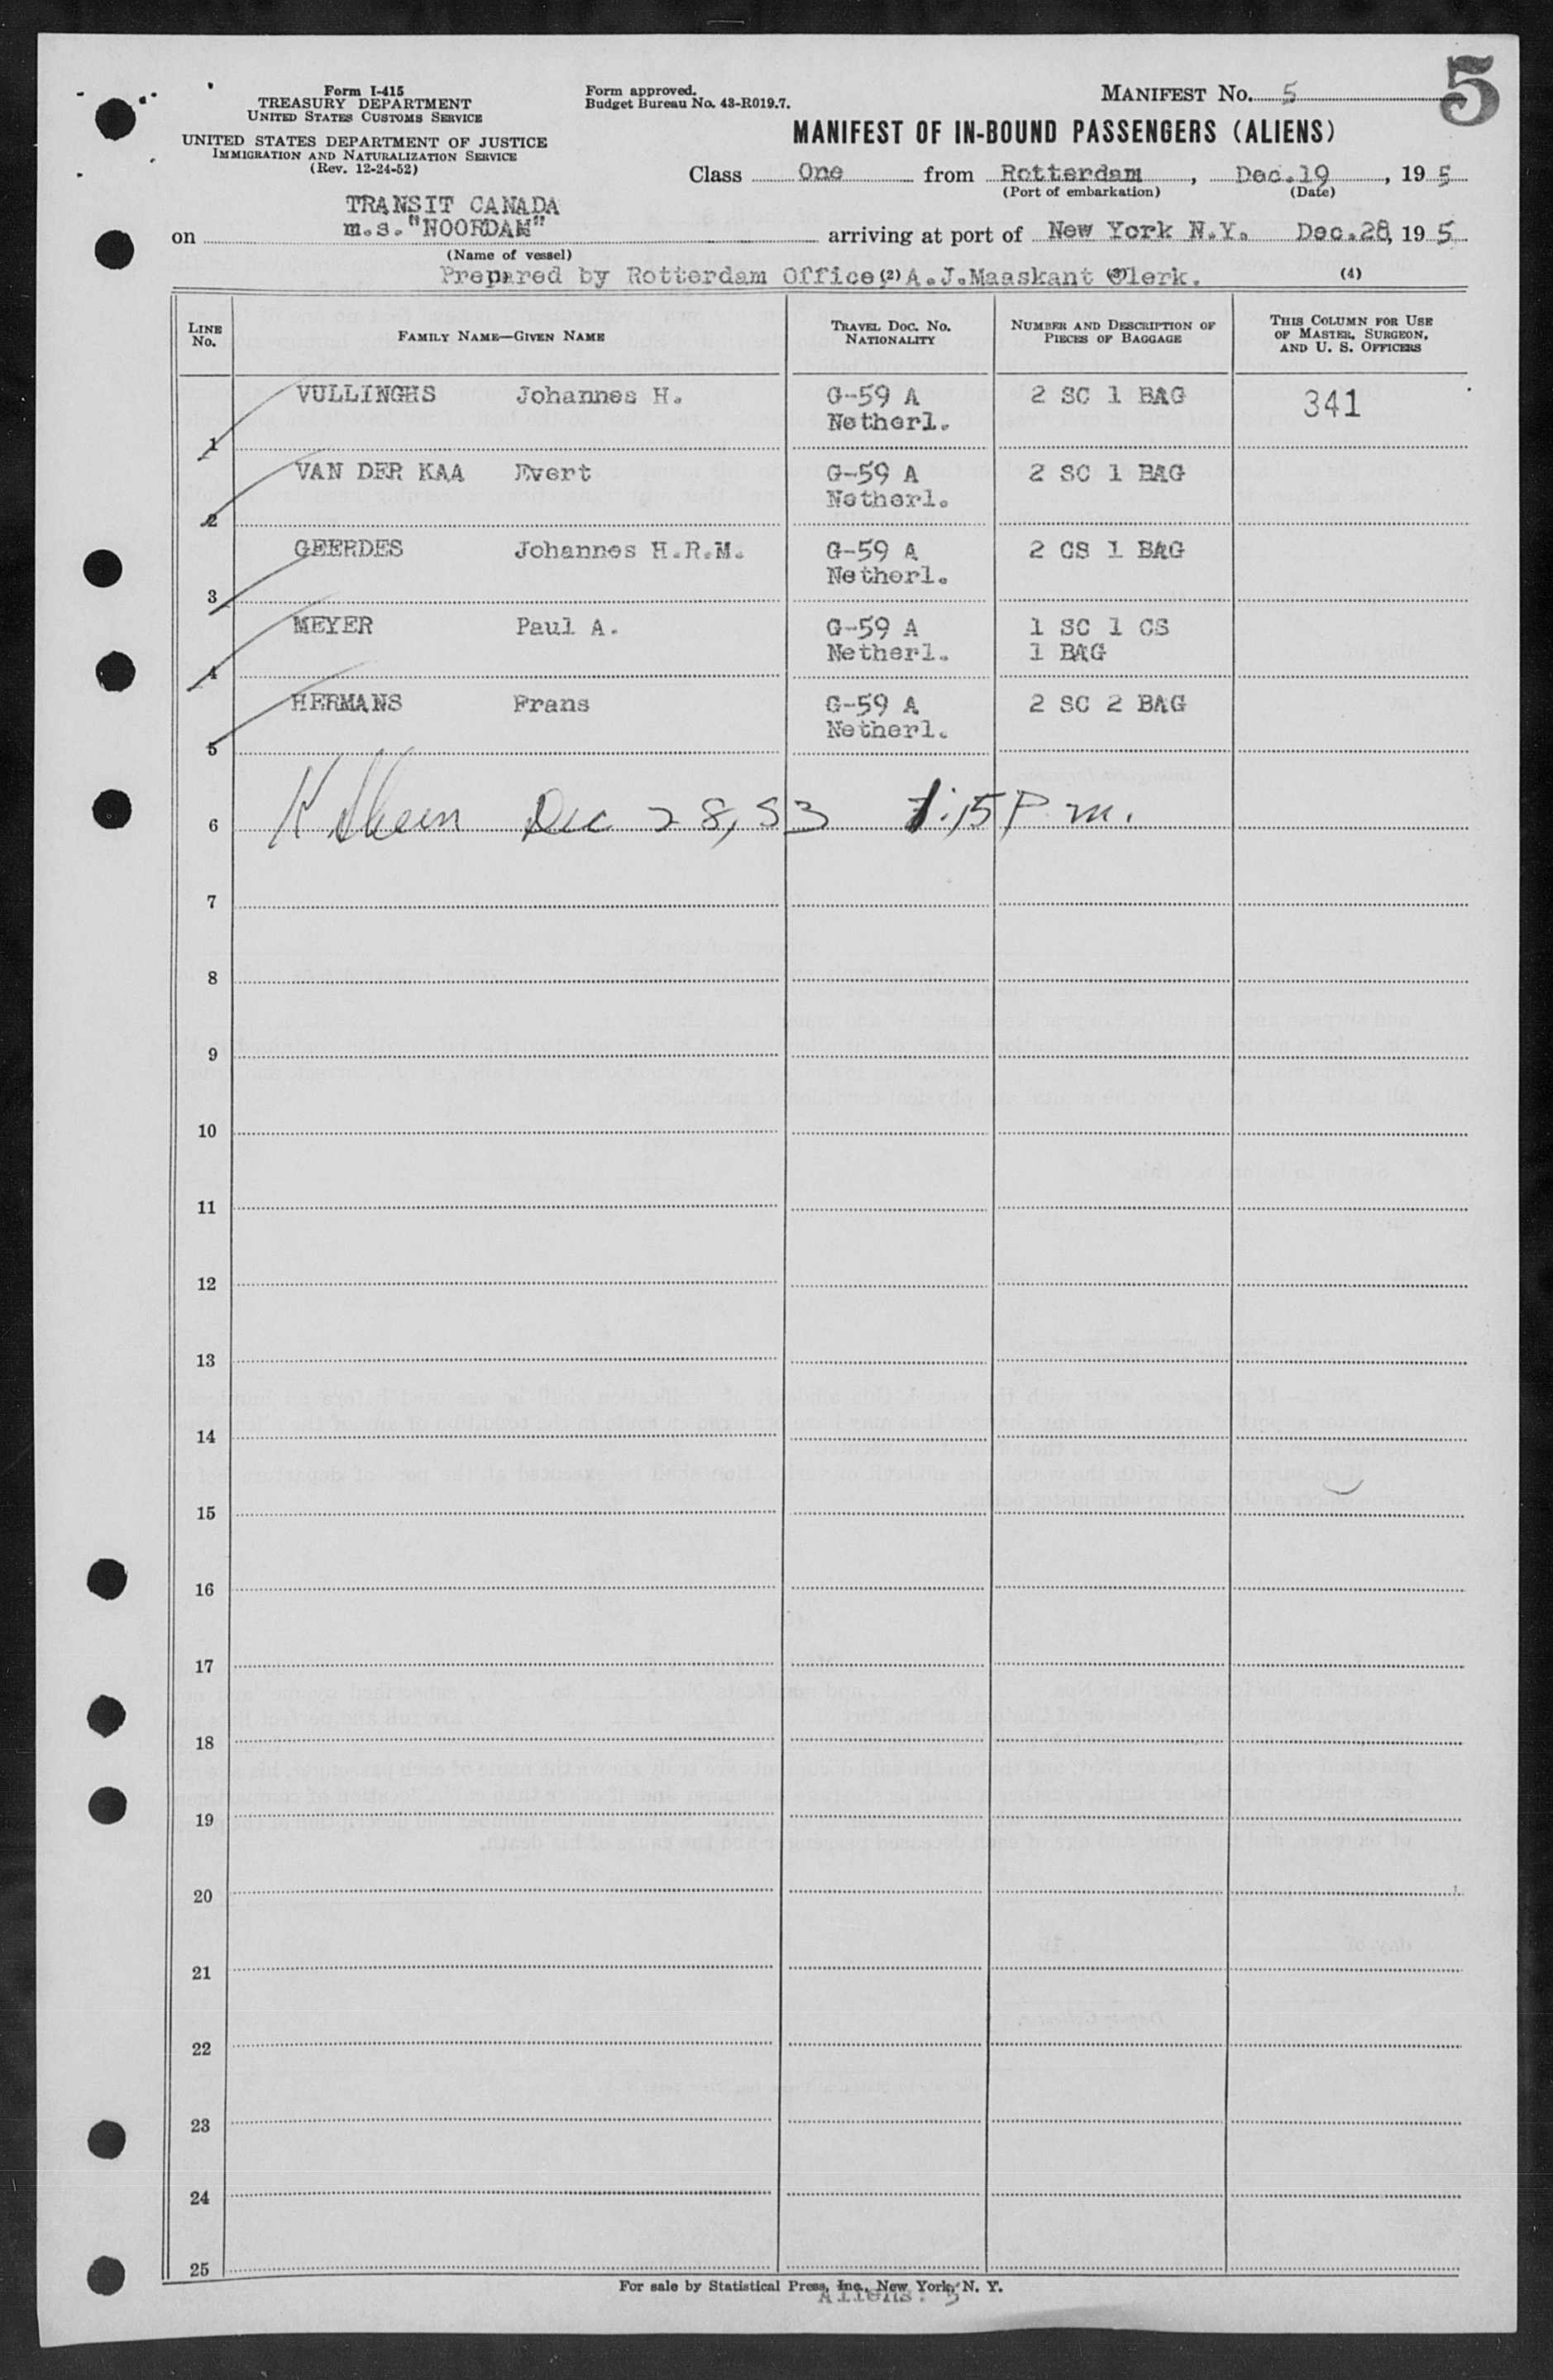 5
Form I-415
TREASURY DEPARTMENT
UNITED STATES CUSTOMS SERVICE
UNITED STATES DEPARTMENT OF JUSTICE
IMMIGRATION AND NATURALIZATION SERVICE
(Rev. 12-24-52)
Form approved.
Budget Bureau No. 43-R019.7.
MANIFEST NO. 5
MANIFEST OF IN-BOUND PASSENGERS (ALIENS)
Class One from Rotterdam, Dec.19, 195
(Port of embarkation) (Date)
TRANSIT CANADA
on m.s."NOORDAM" arriving at port of New York N.Y. Dec.28, 195
(Name of vessel)
Prepared by Rotterdam Office; (2) A.J.Maaskant (3) Clerk. (4)
LINE NO. FAMILY NAME—GIVEN NAME TRAVEL DOC. NO. NATIONALITY NUMBER AND DESCRIPTION OF PIECES OF BAGGAGE THIS COLUMN FOR USE OF MASTER, SURGEON, AND U. S. OFFICERS
VULLINGHS Johannes H. G-59 A 2 SC 1 BAG 341
1 Netherl.
VAN DER KAA Evert G-59 A 2 SC 1 BAG
2 Netherl.
GEERDES Johannes H.R.M. G-59 A 2 CS 1 BAG
3 Netherl.
MEYER Paul A. G-59 A 1 SC 1 CS
4 Netherl. 1 BAG
HERMANS Frans G-59 A 2 SC 2 BAG
5 Netherl.
6 Dec 28, 53 1:15 P m.
7
8
9
10
11
12
13
14
15
16
17
18
19
20
21
22
23
24
25
For sale by Statistical Press, Inc., New York, N. Y.
Aliens: 5